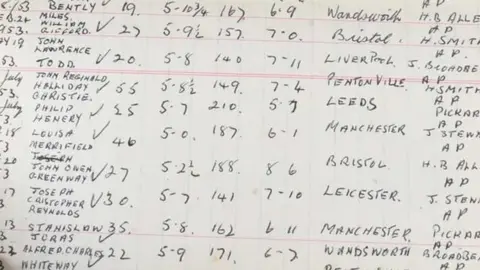 5/53 BENTLY 19. 5-10¾ 167 6-9 Wandsworth H B ALLE
E B. 24 MILES. A P
953. WILLIAM GIFFORD. ✓ 27 5-9½ 157. 7-0 Bristol. H. SMITH
AY 19 JOHN LAWRENCE A P.
53. TODD ✓ 20. 5-8 140 7-11 LIVERPOOL J. BROADBE
July JOHN REGINALD HALLIDAY ✓ 55 5-8½ 149. 7-4 PENTONVILLE. A P H SMITH
53. CHRISTIE. A P
July PHILIP ✓ 25 5-7 210. 5-3 LEEDS PICKAR
3 HENERY A P
18 LOUISA ✓ 46 5-0. 187. 6-1 MANCHESTER J STEW
3 MERRIFIELD A P
20 JOHN OWEN ✓ 27 5-2½ 188. 8 6 BRISTOL. H. B ALL
3 GREENWAY A P
17 JOSEPH CRISTOPHER ✓ 30. 5-7 141 7-10 LEICESTER. J. STEW
3 REYNOLDS A P
13 STANISLAW ✓ 35. 5-8. 162 6 11 MANCHESTER. PICKAR
3 JURAS A P
22 ALFRED. CHARLES ✓ 22 5-9 171. 6-7 WANDSWORTH BROADBE
WHITEWAY A P